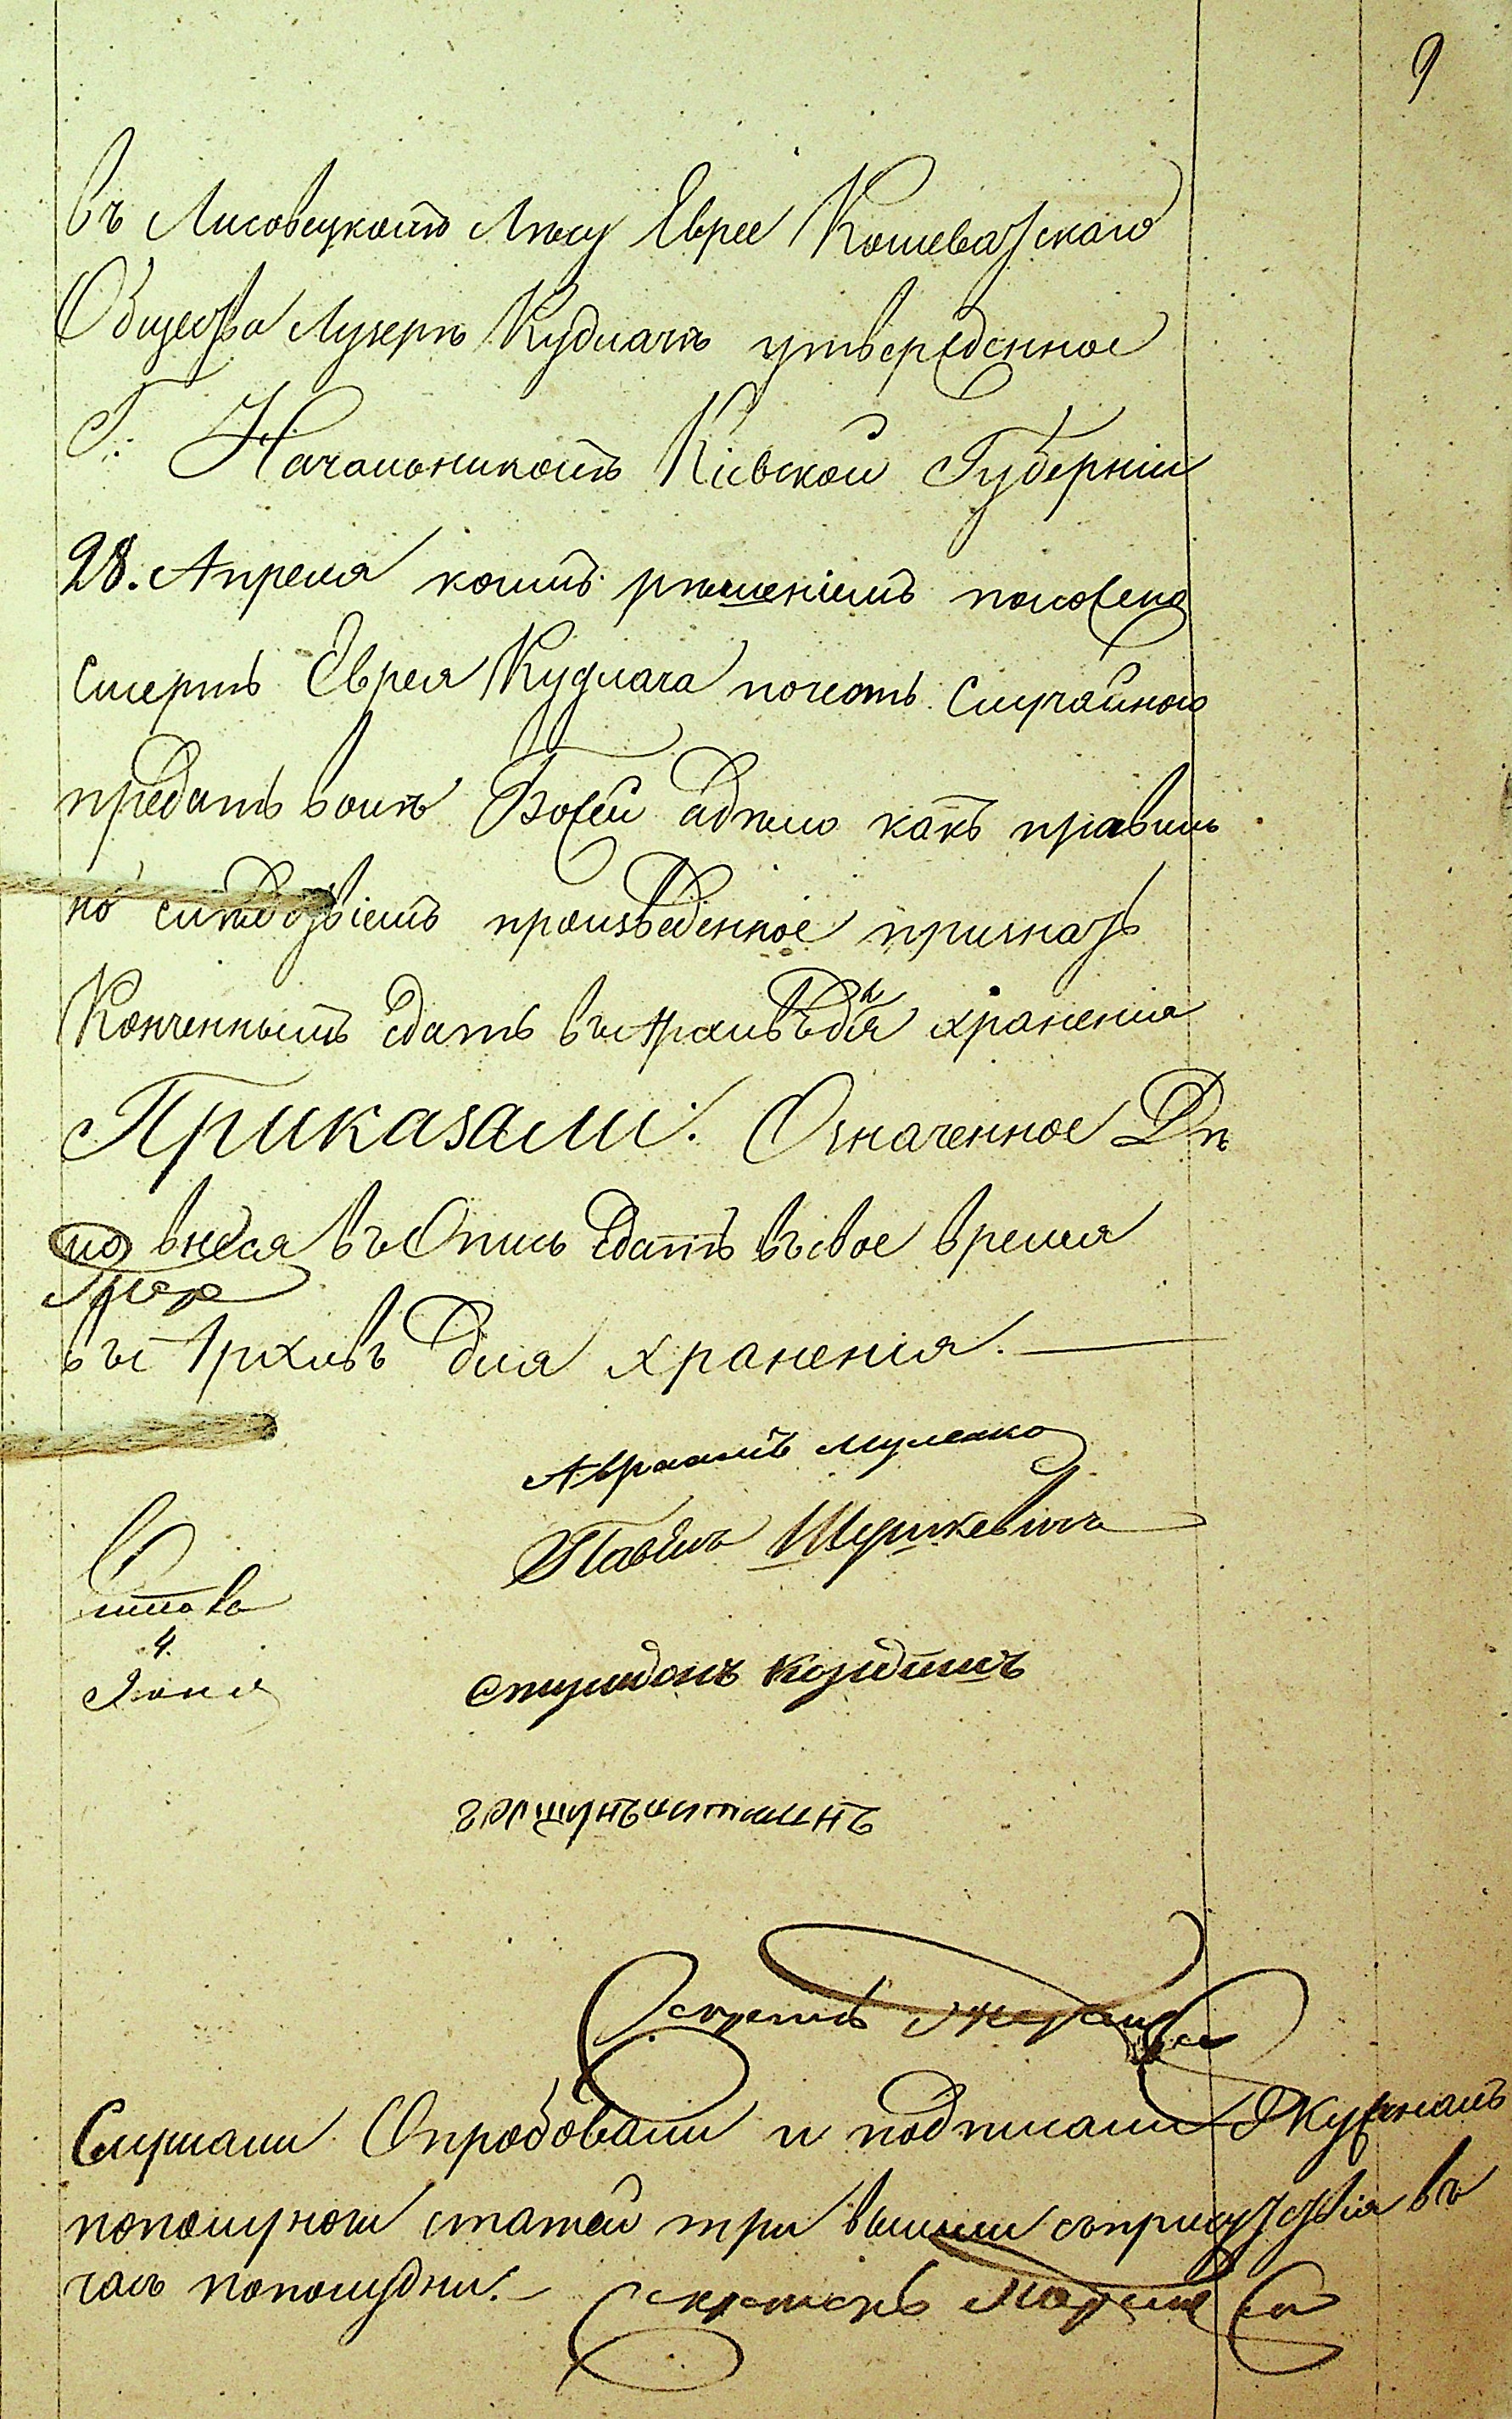 9
въ Лисовецкомъ Лѣсу Еврее Кошеватскаго
Общества Лузеръ Кудлачъ утвержденное
Г: Начальникомъ Кіевской Губерніи
28. Апреля коимъ рѣшеніемъ положено
смерть Еврея Кудлача почесть случайною
предать волѣ Божей а дѣло какъ правиль
но слѣдствіемъ произведенное признать
Конченнымъ сдать въ Архивъ для храненія
Приказали: Означенное Дѣ
ло внеся въ Опись сдать въ свое время
въ Архивъ для храненія.
Авраамъ
Павелъ
Спиридонъ
4.
Іюня
Секретарь
Слушали Опробовали и подписали Журналъ
пополуночи статей три вышли съ присутствія въ
часъ пополудни.
Секретарь